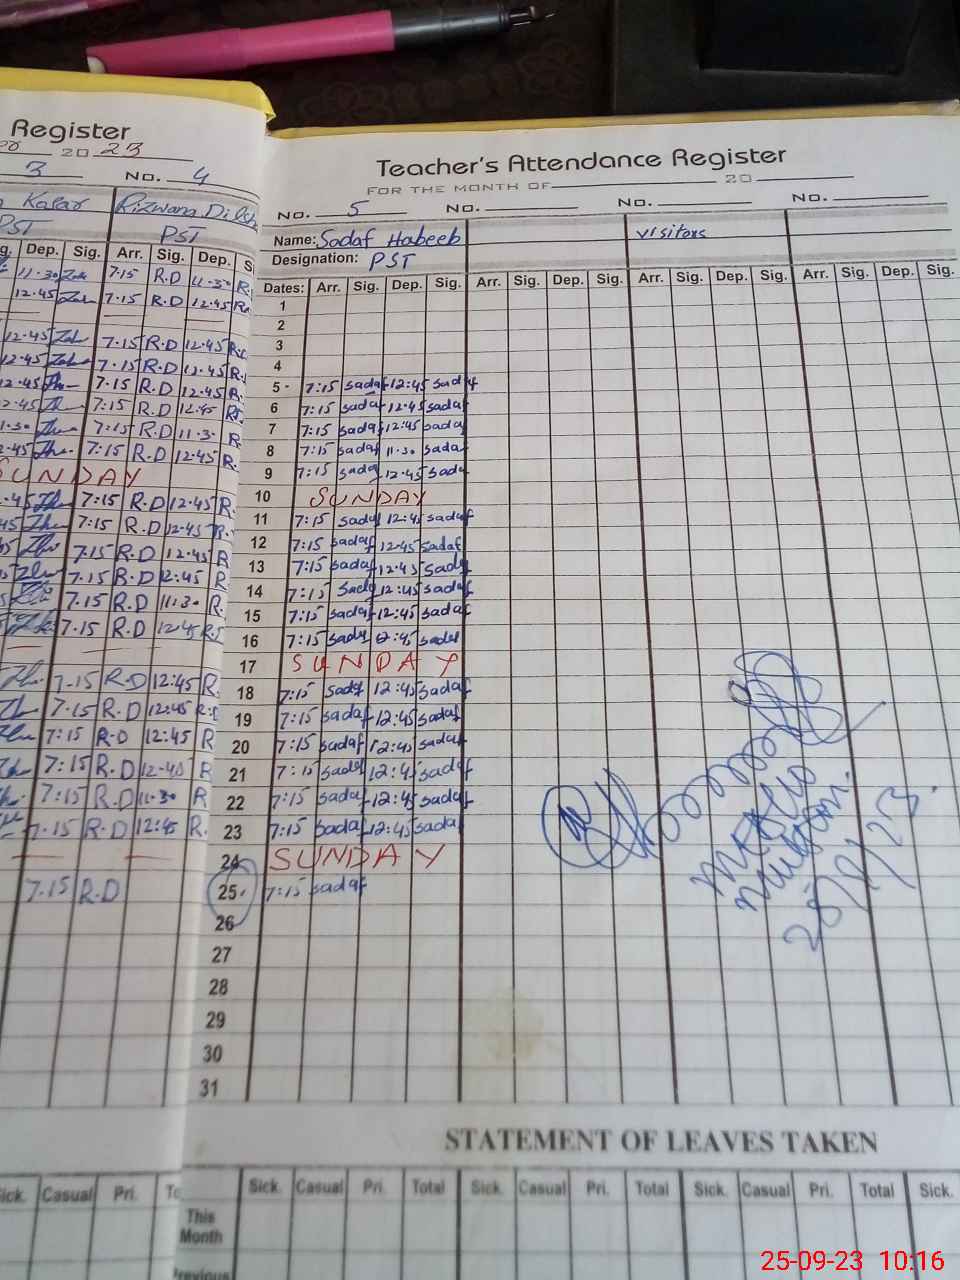 Register
20 23
3 NO. 4
Kasar Rizwana Dilsh
PST PST
Dep. Sig. Arr. Sig. Dep. Si
11.30 7.15 R.D 11.30 R.
12.45 7.15 R.D 12.45 R.
12.45 7.15 R.D 12.45 R.
12.45 7.15 R.D 12.45 R.
12.45 7.15 R.D 12.45 R.
2.45 7:15 R.D 12.45
1.30 7:15 R.D 11.30 R
2.45 7:15 R.D 12.45 R.
SUNDAY
.45 7:15 R.D 12.45 R.
45 7:15 R.D 12.45 R.
7.15 R.D 12.45 R
7.15 R.D 12:45 R
7.15 R.D 11:30 R.
7.15 R.D 12.45
7.15 R.D 12:45 R.
7.15 R.D 12:45
7:15 R.D 12:45 R
7:15 R.D 12.45 R
7:15 R.D 11.30 R
7.15 R.D 12:45 R.
7.15 R.D
Sick. Casual Pri.
Teacher's Attendance Register
FOR THE MONTH OF 20
NO. 5 NO. NO. NO.
Name: Sadaf Habeeb visitors
Designation: PST
Dates: Arr. Sig. Dep. Sig. Arr. Sig. Dep. Sig. Arr. Sig. Dep. Sig. Arr. Sig. Dep. Sig.
1
2
3
4
5 7:15 sadaf 12:45 sadaf
6 7:15 sadaf 12.45 sadaf
7 7:15 sadaf 12:45 sadaf
8 7:15 sadaf 11.30 sadaf
9 7:15 sadaf 12.45 sadaf
10 SUNDAY
11 7:15 sadaf 12:45 sadaf
12 7:15 sadaf 12.45 sadaf
13 7:15 sadaf 12.45 sadaf
14 7:15 sadaf 12:45 sadaf
15 7:15 sadaf 12:45 sadaf
16 7:15 sadaf 12:45 sadaf
17 SUNDAY
18 7:15 sadaf 12:45 sadaf
19 7:15 sadaf 12:45 sadaf
20 7:15 sadaf 12:45 sadaf
21 7:15 sadaf 12:45 sadaf
22 7:15 sadaf 12:45 sadaf
23 7:15 sadaf 12:45 sadaf
24 SUNDAY
25 7:15 sadaf
26
27
28
29
30
31
STATEMENT OF LEAVES TAKEN
Sick. Casual Pri. Total Sick. Casual Pri. Total Sick. Casual Pri. Total Sick.
This
Month
Previous
25-09-23 10:16